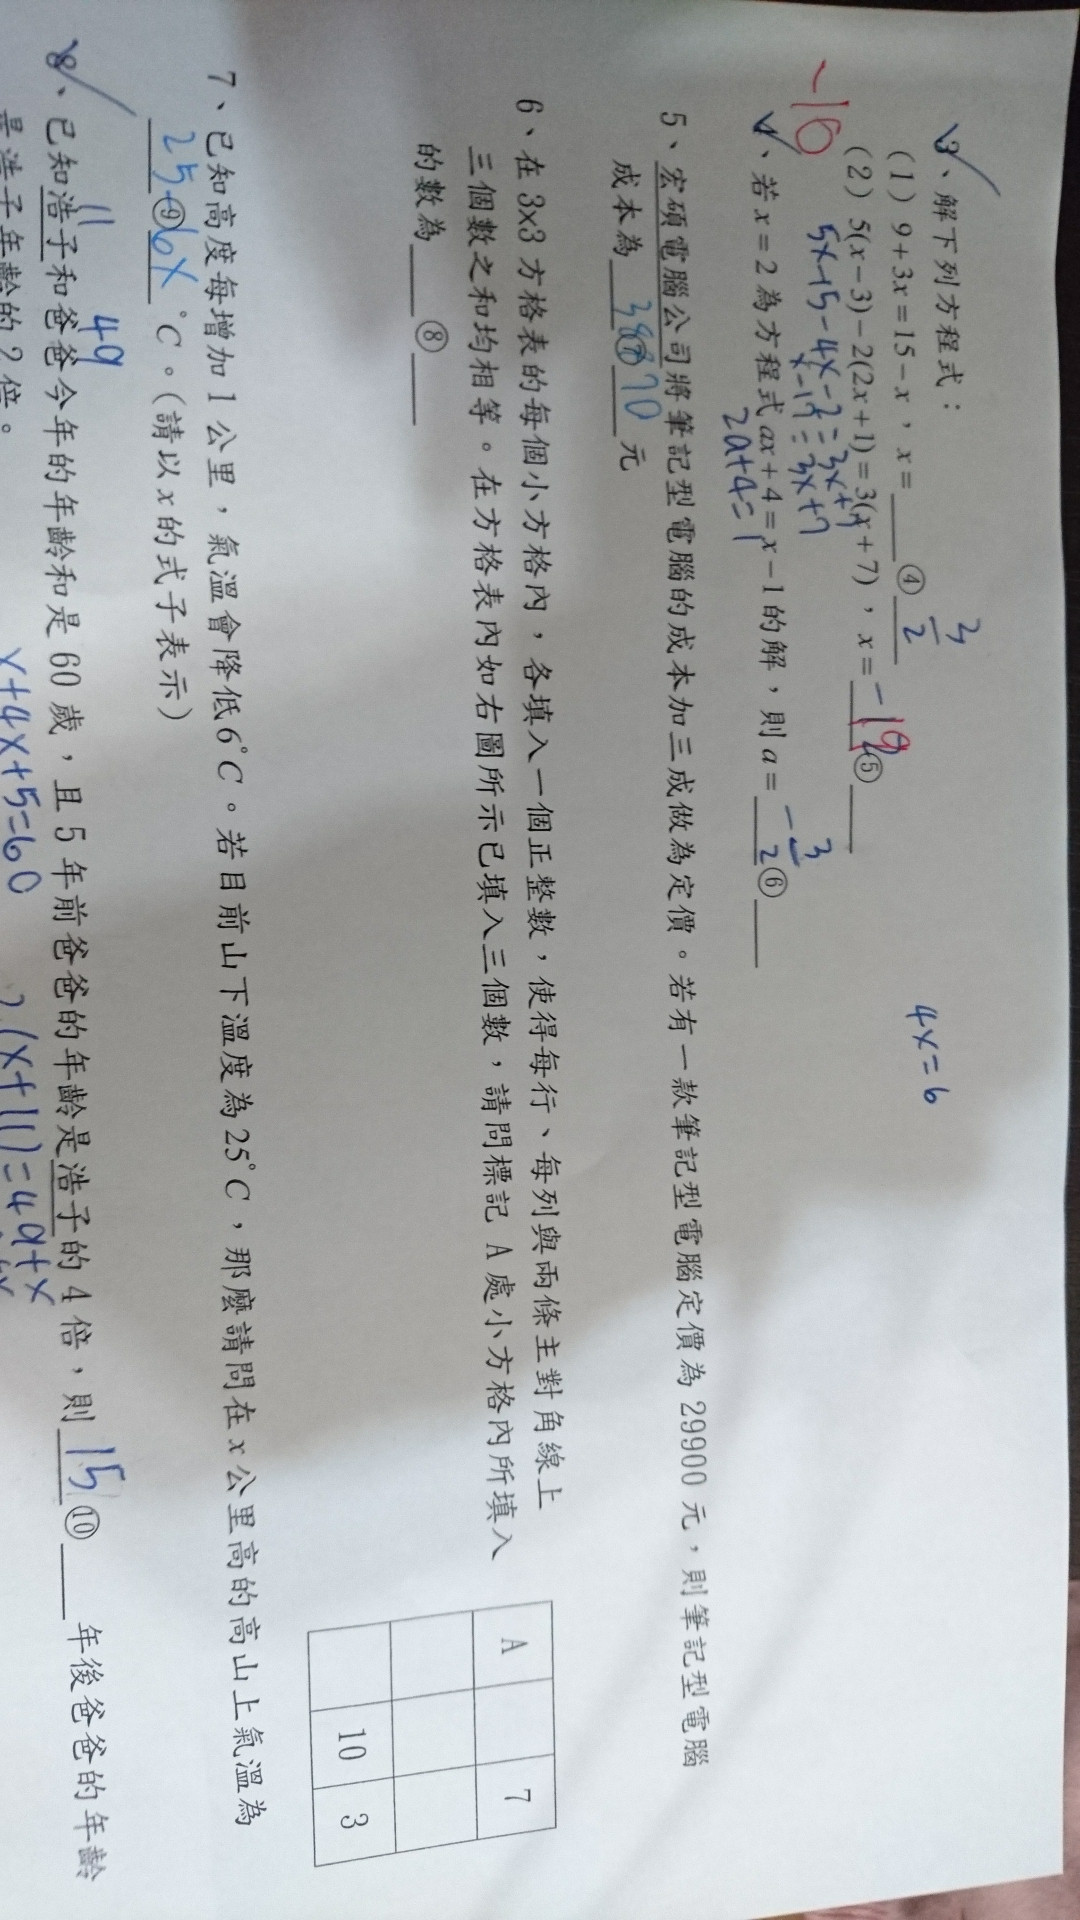 3、解下列方程式：
(1) 9+3x=15-x，x=④ 3/2
4x=6
(2) 5(x-3)-2(2x+1)=3(x+7)，x=-19⑤
5x-15-4x-2=3x+7
x-17=3x+7
-16
4、若x=2為方程式ax+4=x-1的解，則a=-3/2⑥
2a+4=1
5、宏碩電腦公司將筆記型電腦的成本加三成做為定價。若有一款筆記型電腦定價為29900元，則筆記型電腦
成本為⑦元
6、在3x3方格表的每個小方格內，各填入一個正整數，使得每行、每列與兩條主對角線上
三個數之和均相等。在方格表內如右圖所示已填入三個數，請問標記A處小方格內所填入
的數為⑧
A 7
10 3
7、已知高度每增加1公里，氣溫會降低6°C。若目前山下溫度為25°C，那麼請問在x公里高的高山上氣溫為
25-⑨6x °C。(請以x的式子表示)
11 49
8、已知浩子和爸爸今年的年齡和是60歲，且5年前爸爸的年齡是浩子的4倍，則15⑩年後爸爸的年齡
是浩子年齡的2倍。
x+4x+5=60
2(x+11)=49+x